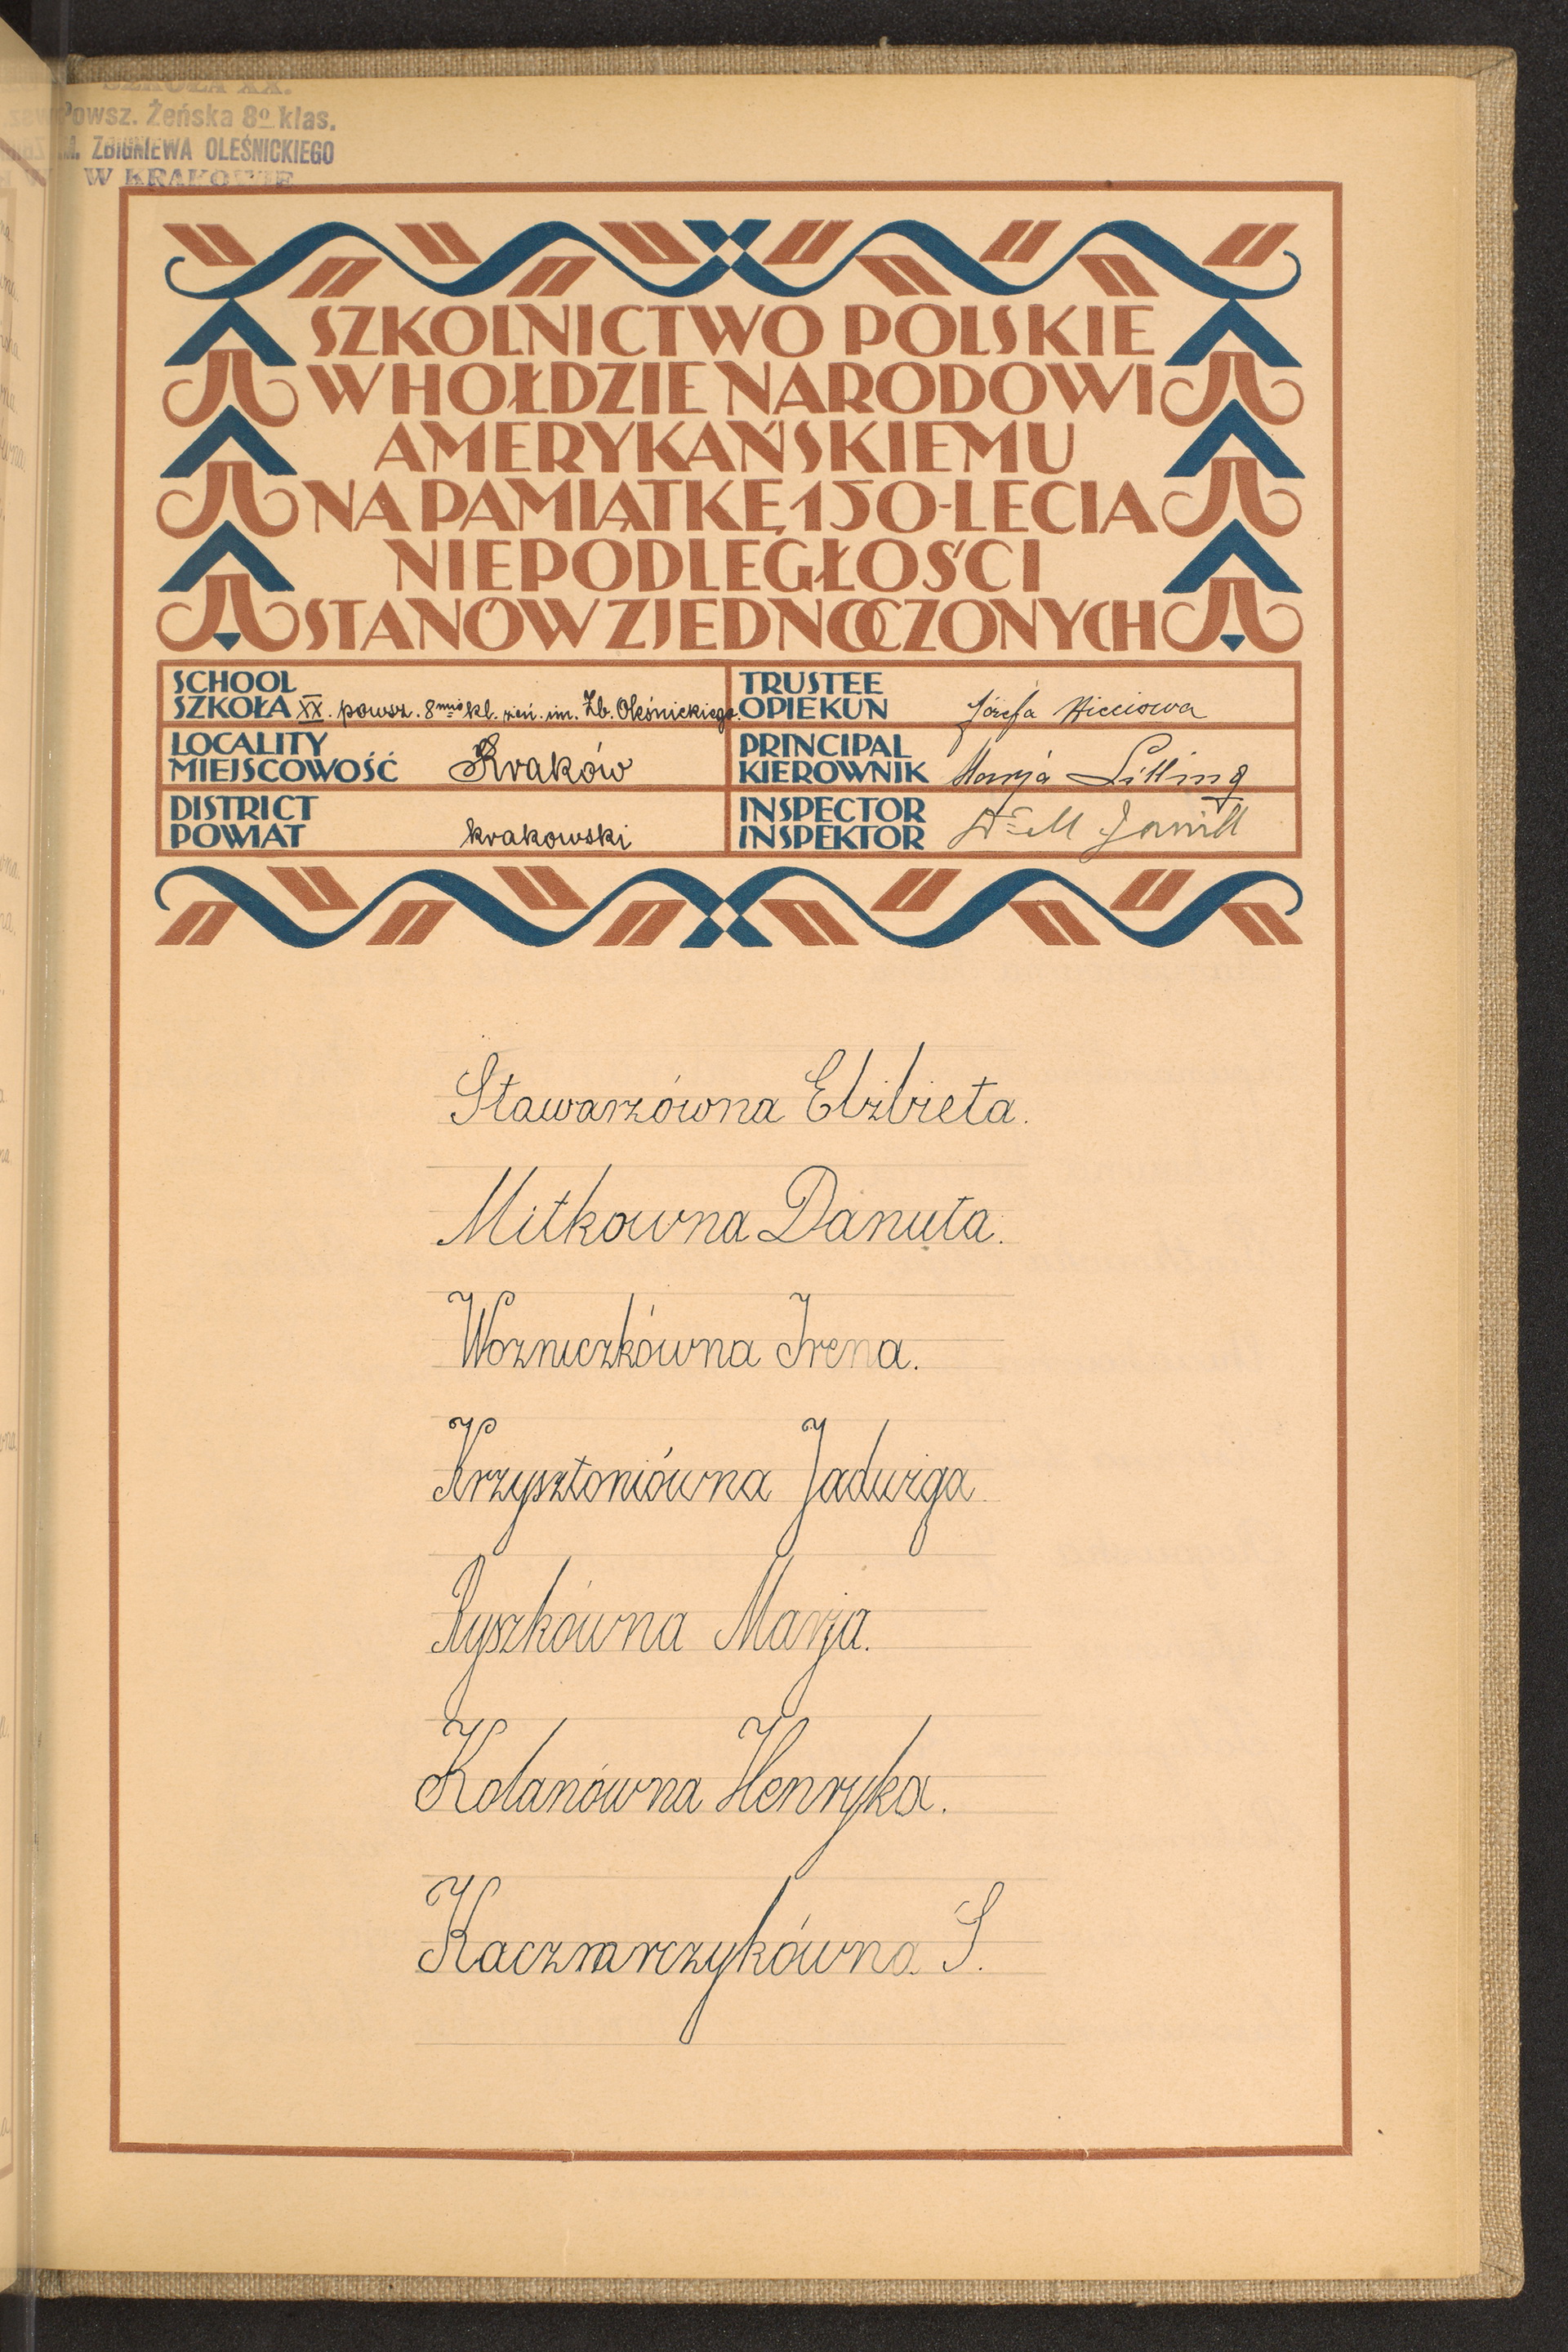 SZKOŁA XX.
Powsz. Żeńska 8º klas.
ZBIGNIEWA OLEŚNICKIEGO
W KRAKOWIE
SZKOLNICTWO POLSKIE
W HOŁDZIE NARODOWI
AMERYKAŃSKIEMU
NA PAMIĄTKĘ 150-LECIA
NIEPODLEGŁOŚCI
STANÓW ZJEDNOCZONYCH
SCHOOL
SZKOŁA XX. powsz. 8mio kl. żeń. im. Zb. Oleśnickiego.
TRUSTEE
OPIEKUN Józefa
LOCALITY
MIEJSCOWOŚĆ Kraków
PRINCIPAL
KIEROWNIK Marja Silling
DISTRICT
POWIAT krakowski
INSPECTOR
INSPEKTOR Dr M
Stawarzówna Elżbieta.
Mitkowna Danuta.
Wozniczkówna Irena.
Krzysztoniówna Jadwiga
Ryszkówna Marja.
Kolanówna Henryka.
Kaczmarczykówna S.